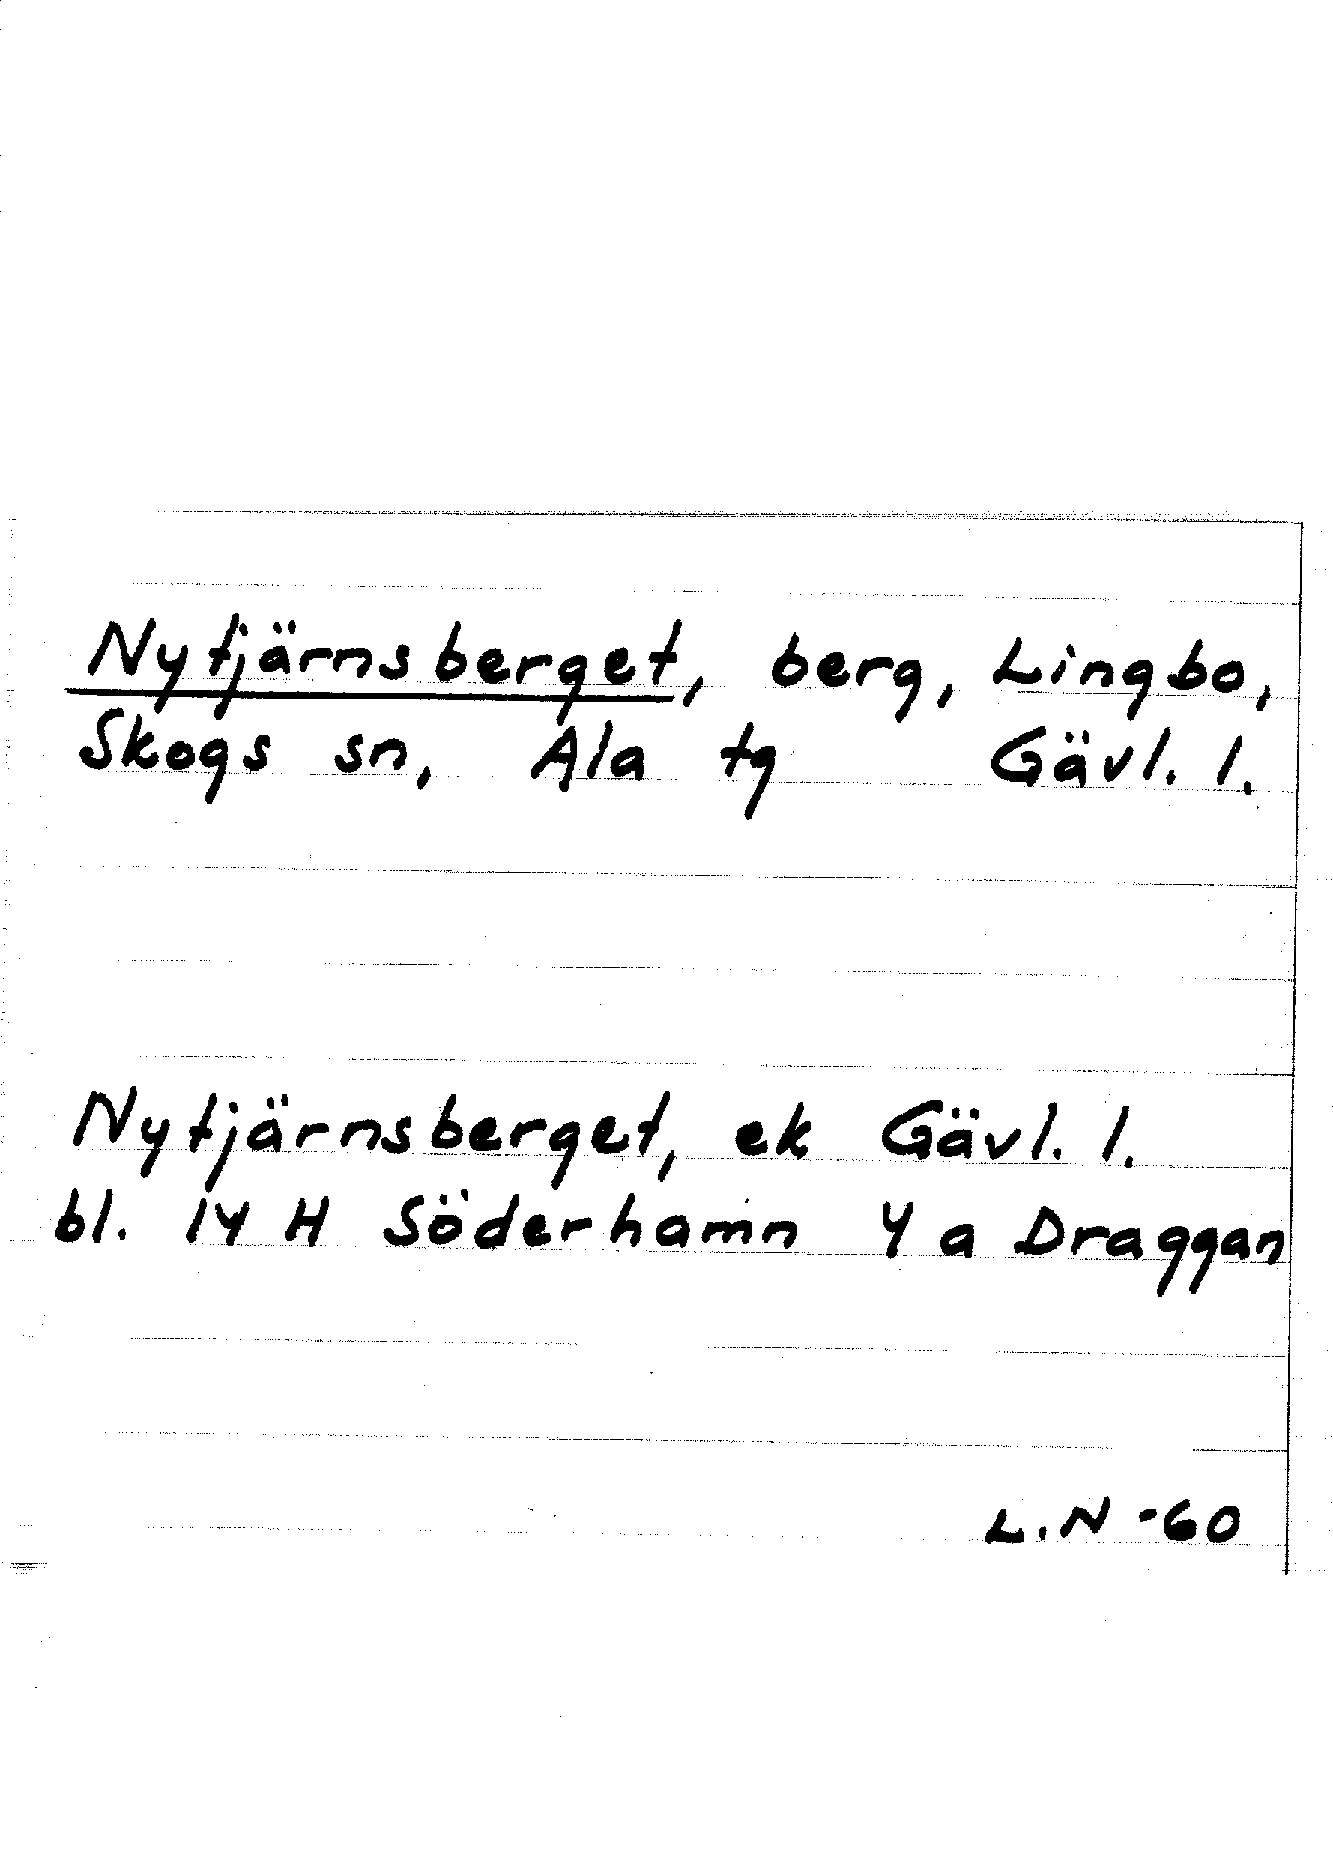 Nytjärnsberget, berg, Lingbo,
Skogs sn, Ala tg Gävl. l.
Nytjärnsberget, ek Gävl. l.
bl. 14 H Söderhamn 4 a Draggan
L.N -60